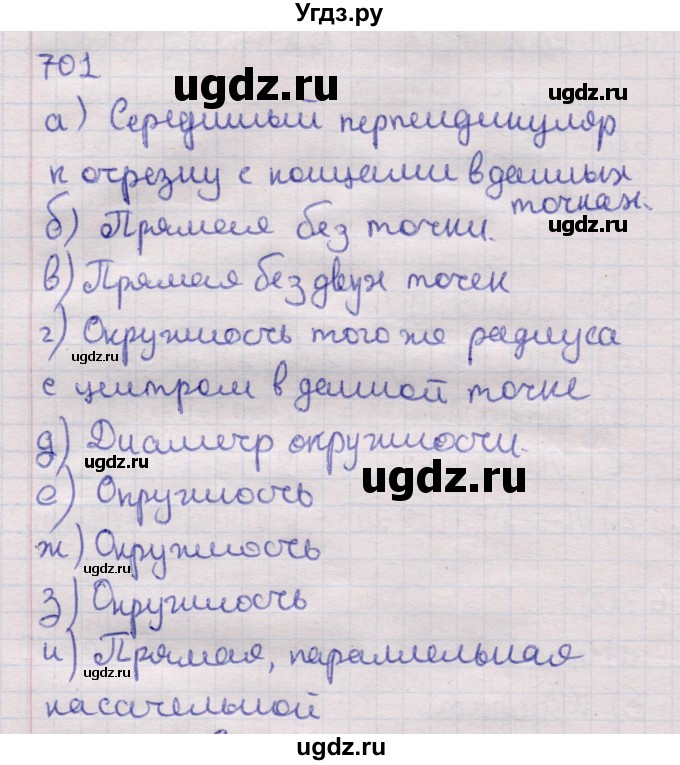 Угдз.ру
701
ugdz.ru
а) Серединный перпендикуляр
ugdz.ru
к отрезку с концами в данных
точках.
ugdz.ru
б) Прямая без точки.
в) Прямая без двух точек
г) Окружность того же радиуса
ugdz.ru
с центром в данной точке
д) Диаметр окружности.
ugdz.ru
ugdz.ru
е) Окружность
ж) Окружность
ugdz.ru
з) Окружность
ugdz.ru
и) Прямая, параллельная
ugdz.ru
касательной
ugdz.ru